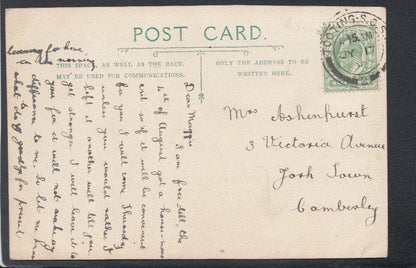 POST CARD.
THIS SPACE, AS WELL AS THE BACK,
MAY BE USED FOR COMMUNICATIONS.
ONLY THE ADDRESS TO BE
WRITTEN HERE.
TOOTING. S.O. S.W
Mrs Ashenhurst
3 Victoria Avenue
York Town
Camberley
Dear Maggie
I am free till the
4th of August got a house
so if it will be convenient
for you I will come Thursday
unless you would rather I
left it another week till you
get stronger I will leave it to
you for it will not make any
difference to me, so let me know
what to do & goodbye for present
leaving for home